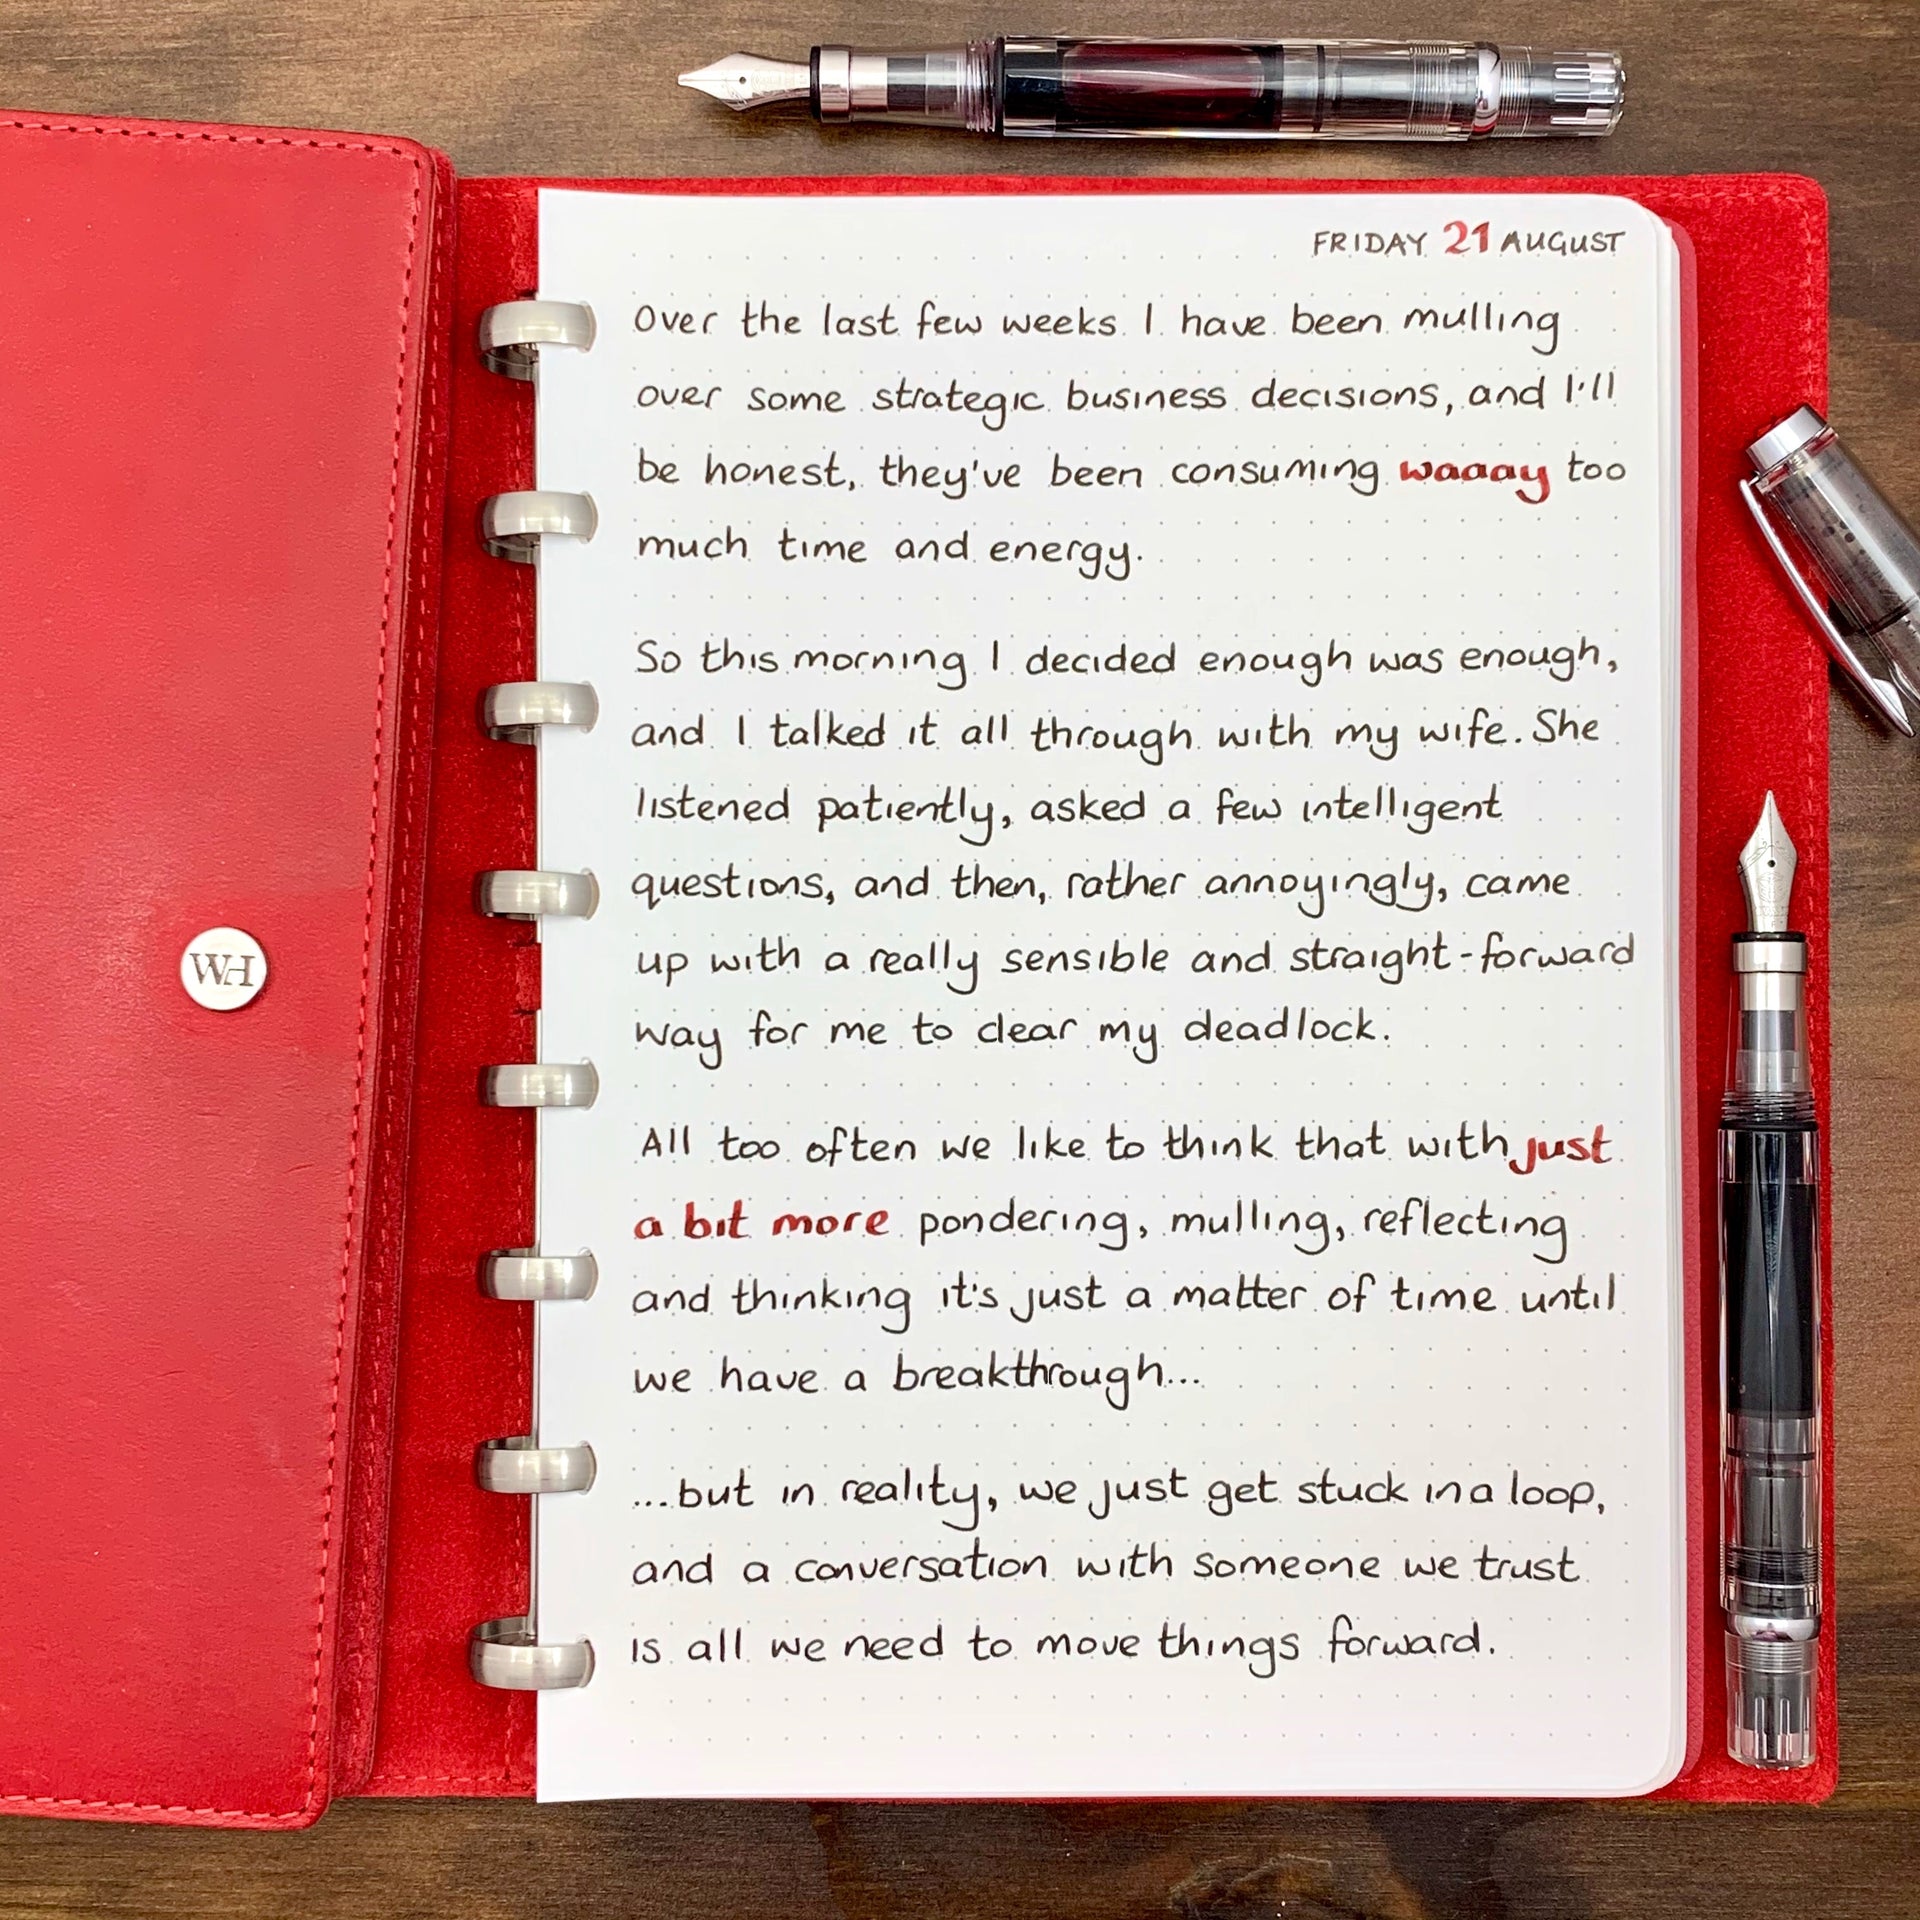 FRIDAY 21 AUGUST
Over the last few weeks I have been mulling
over some strategic business decisions, and I'll
be honest, they've been consuming waaay too
much time and energy.
So this morning I decided enough was enough,
and I talked it all through with my wife. She
listened patiently, asked a few intelligent
questions, and then, rather annoyingly, came
up with a really sensible and straight-forward
way for me to clear my deadlock.
All too often we like to think that with just
a bit more pondering, mulling, reflecting
and thinking it's just a matter of time until
we have a breakthrough...
...but in reality, we just get stuck in a loop,
and a conversation with someone we trust
is all we need to move things forward.
WH